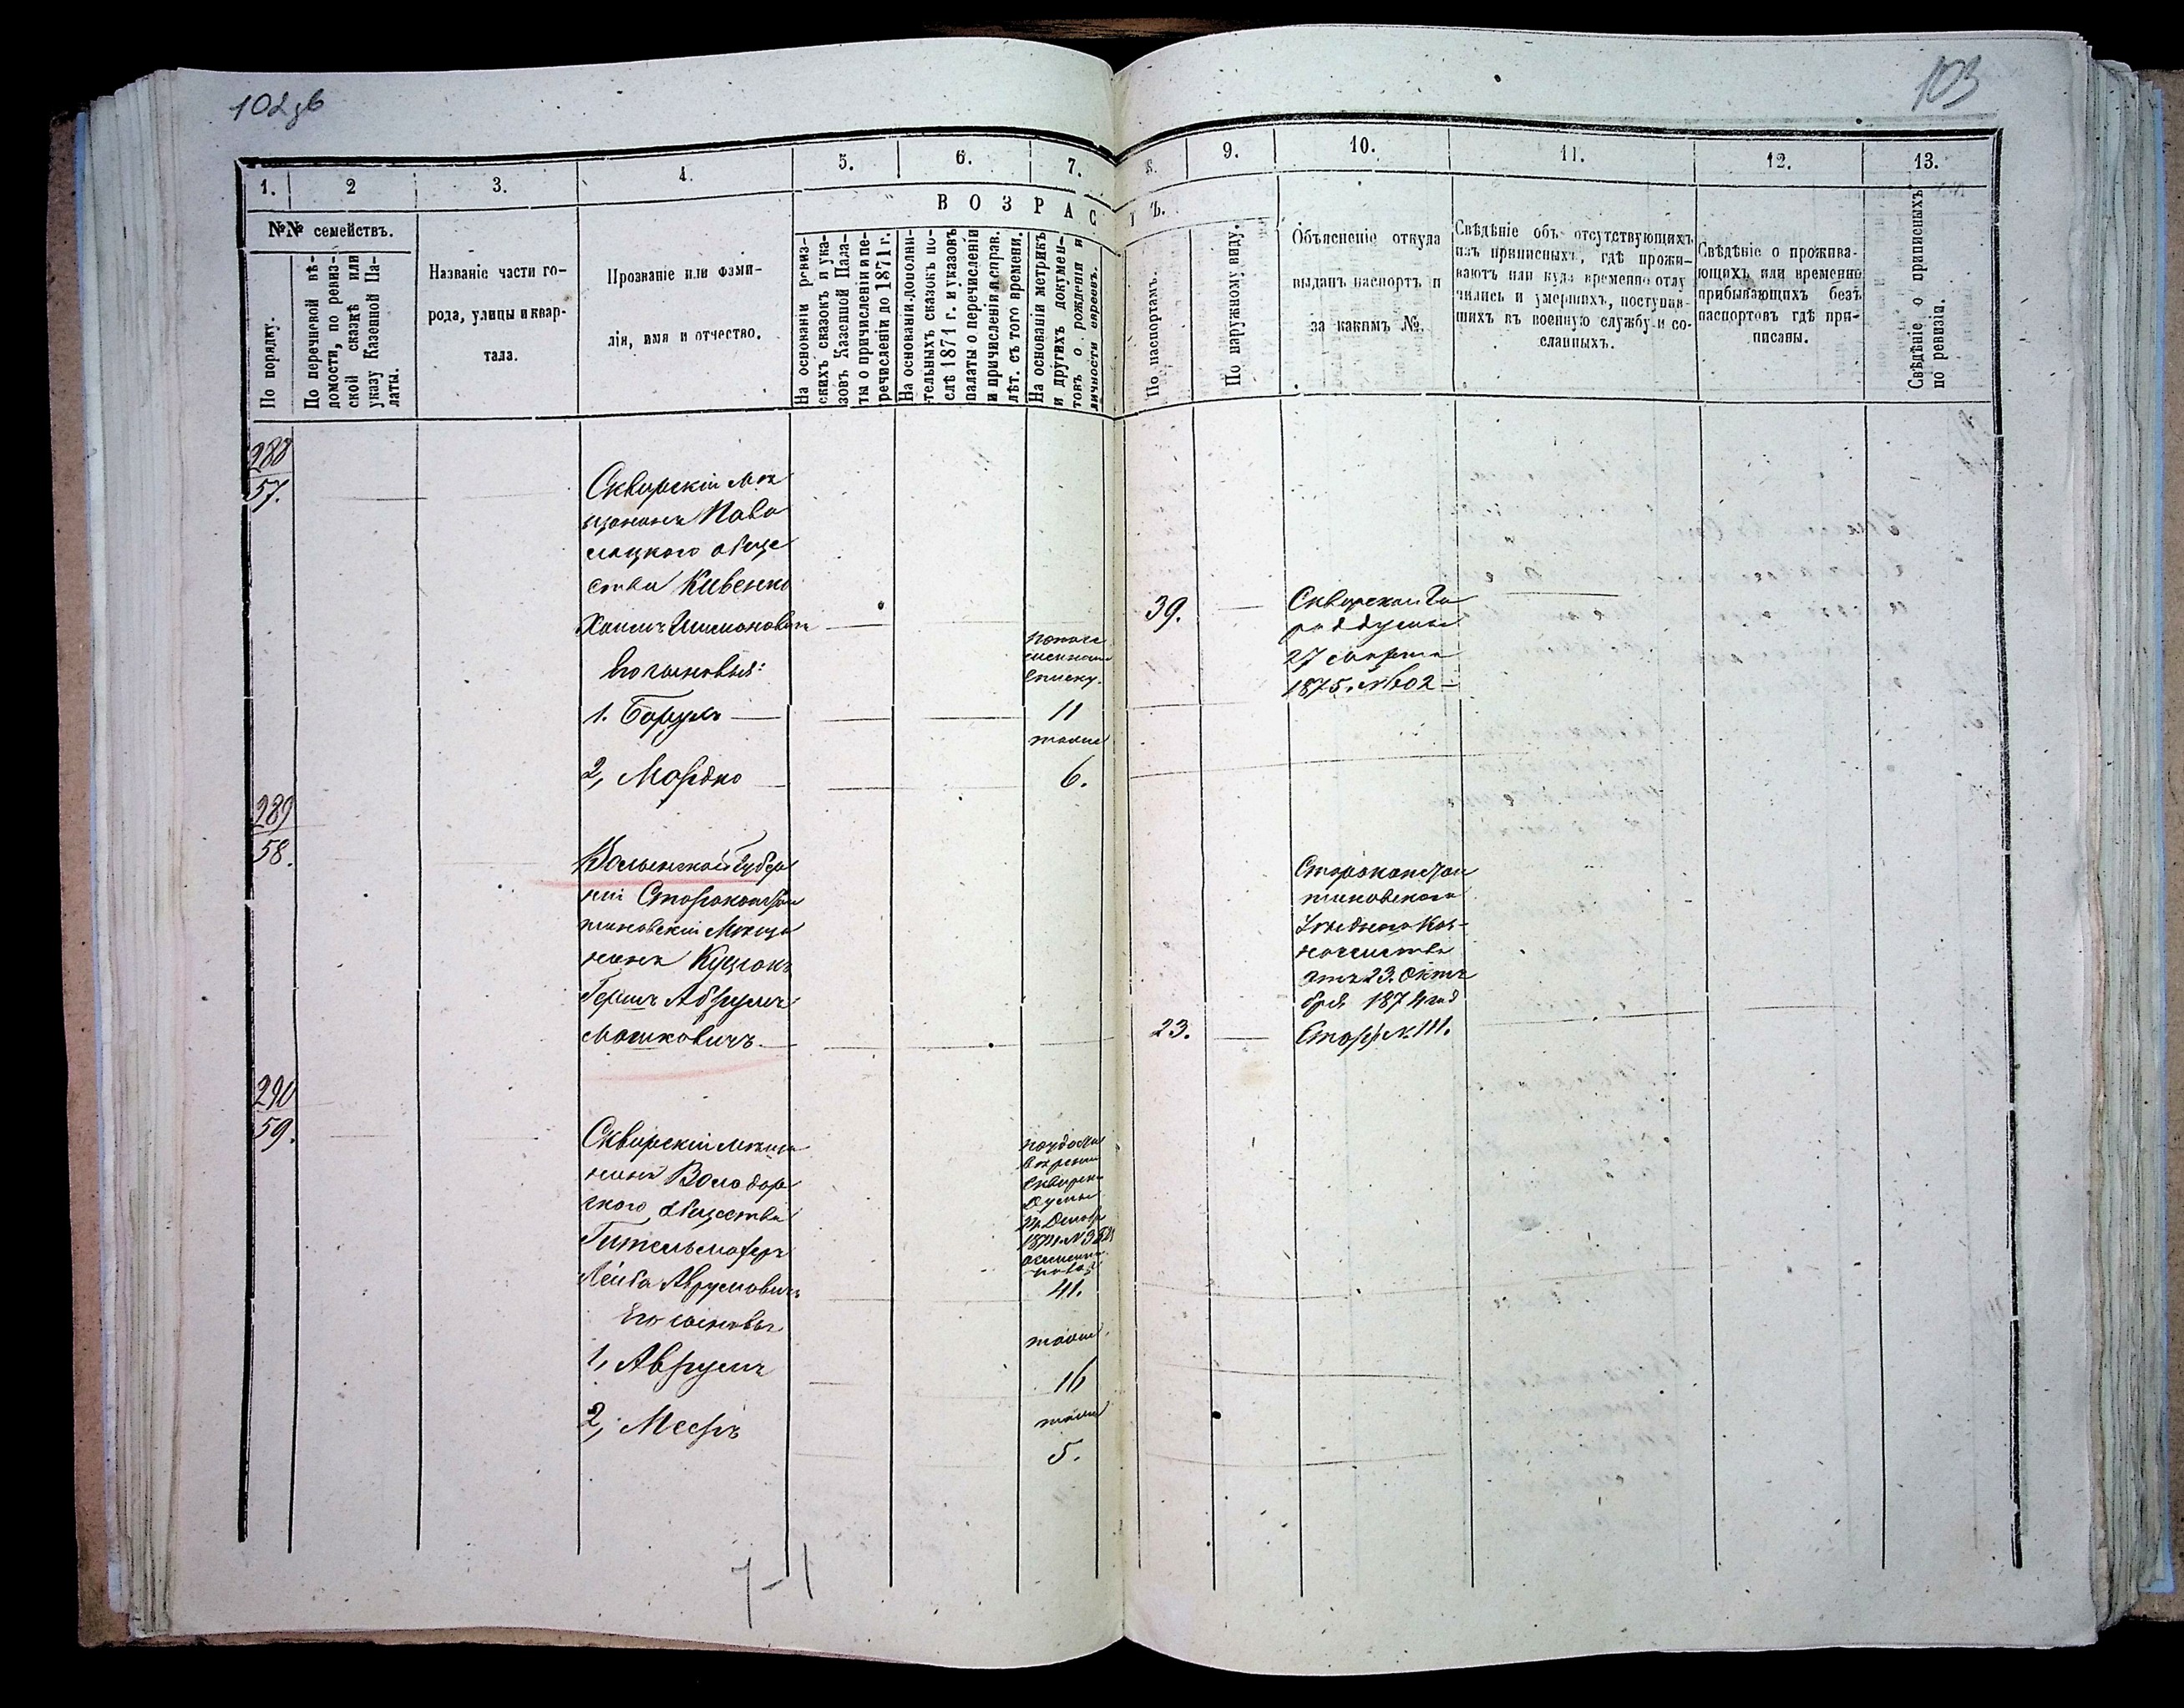 102 зв
103
1.
2
3.
4.
5.
6.
7.
8.
9.
10.
11.
12.
13.
№№ семействъ.
По порядку.
По перечневой вѣ-
домости, по ревиз-
ской сказкѣ или
указу Казенной Па-
латы.
Названіе части го-
рода, улицы и квар-
тала.
Прозваніе или фами-
лія, имя и отчество.
ВОЗРАСТЪ.
На основаніи ревиз-
скихъ сказокъ и ука-
зовъ Казенной Пала-
ты о причисленіи и пе-
речисленіи до 1871 г.
На основаніи дополни-
тельныхъ сказокъ по-
слѣ 1871 г. и указовъ
палаты о перечисленіи
и причисленіи и справ.
лѣт. съ того времени.
На основаніи метрикъ
и другихъ докумен-
товъ о рожденіи и
личности евреевъ.
По паспортамъ.
По наружному виду.
Объясненіе откуда
выданъ паспортъ и
за какимъ №.
Свѣдѣніе объ отсутствующихъ
изъ приписныхъ, гдѣ прожи-
ваютъ или куда временно отлу
чились и умершихъ, поступив-
шихъ въ военную службу и со-
сланныхъ.
Свѣдѣніе о прожива-
ющихъ или временно
прибывающихъ безъ
паспортовъ гдѣ при-
писаны.
Свѣдѣніе о приписныхъ
по ревизіи.
288
57.
Сквирскій мѣ
щанинъ Паво
лоцкого обще
ства Кивенко
Хаимъ Шимоновичъ
Его сыновья:
1. Борухъ
2, Мордко
по
списку.
11
тоже
6.
39.
Сквирской Го
род думы
27 марта
1875. №602
289
58.
Волынской Губер
ніи Староконстан
тиновскій Мѣща
нинъ Куцюкъ
Гершъ Абрумъ
Мошковичъ
23.
Староконстан
тиновского
Уѣздного Каз-
начейства
отъ 23. Октя
бря 1874 год
№111.
290
59.
Сквирскій мѣща
нинъ Володар
ского общества
Гительмахеръ
Лейба Аврумовичъ
Его сыновья
1, Аврумъ
2, Мееръ
Сквирск
Думы
41.
тоже
16
тоже
5.
7-1